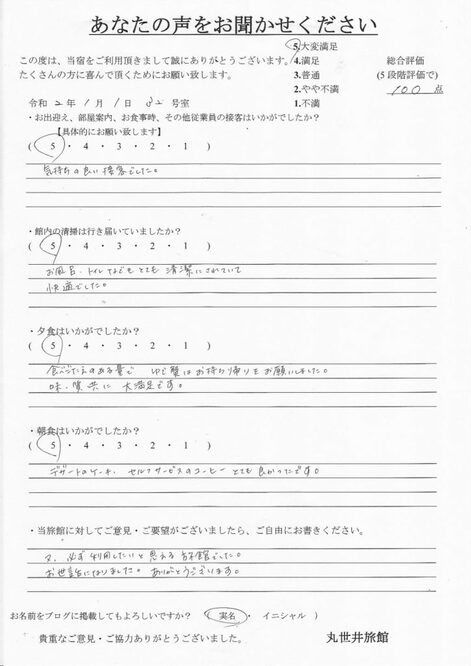 あなたの声をお聞かせください
この度は、当宿をご利用頂きまして誠にありがとうございます。
たくさんの方に喜んで頂くためにお願い致します。
5.大変満足
4.満足
3.普通
2.やや不満
1.不満
総合評価
(5段階評価で)
100 点
令和 2年 1月 1日 号室
・お出迎え、部屋案内、お食事時、その他従業員の接客はいかがでしたか？
【具体的にお願い致します】
( 5 ・ 4 ・ 3 ・ 2 ・ 1 )
気持ちの良い接客でした。
・館内の清掃は行き届いていましたか？
( 5 ・ 4 ・ 3 ・ 2 ・ 1 )
お風呂、トイレなどもとても清潔にされていて
快適でした。
・夕食はいかがでしたか？
( 5 ・ 4 ・ 3 ・ 2 ・ 1 )
食べごたえのある量で ゆで蟹はお持ち帰りをお願いしました。
味、質共に 大満足です。
・朝食はいかがでしたか？
( 5 ・ 4 ・ 3 ・ 2 ・ 1 )
デザートのケーキ、セルフサービスのコーヒー とても良かったです。
・当旅館に対してご意見・ご要望がございましたら、ご自由にお書きください。
又、必ず利用したいと思える旅館でした。
お世話になりました。ありがとうございます。
お名前をブログに掲載してもよろしいですか？ ( 実名 ・ イニシャル )
貴重なご意見・ご協力ありがとうございました。
丸世井旅館